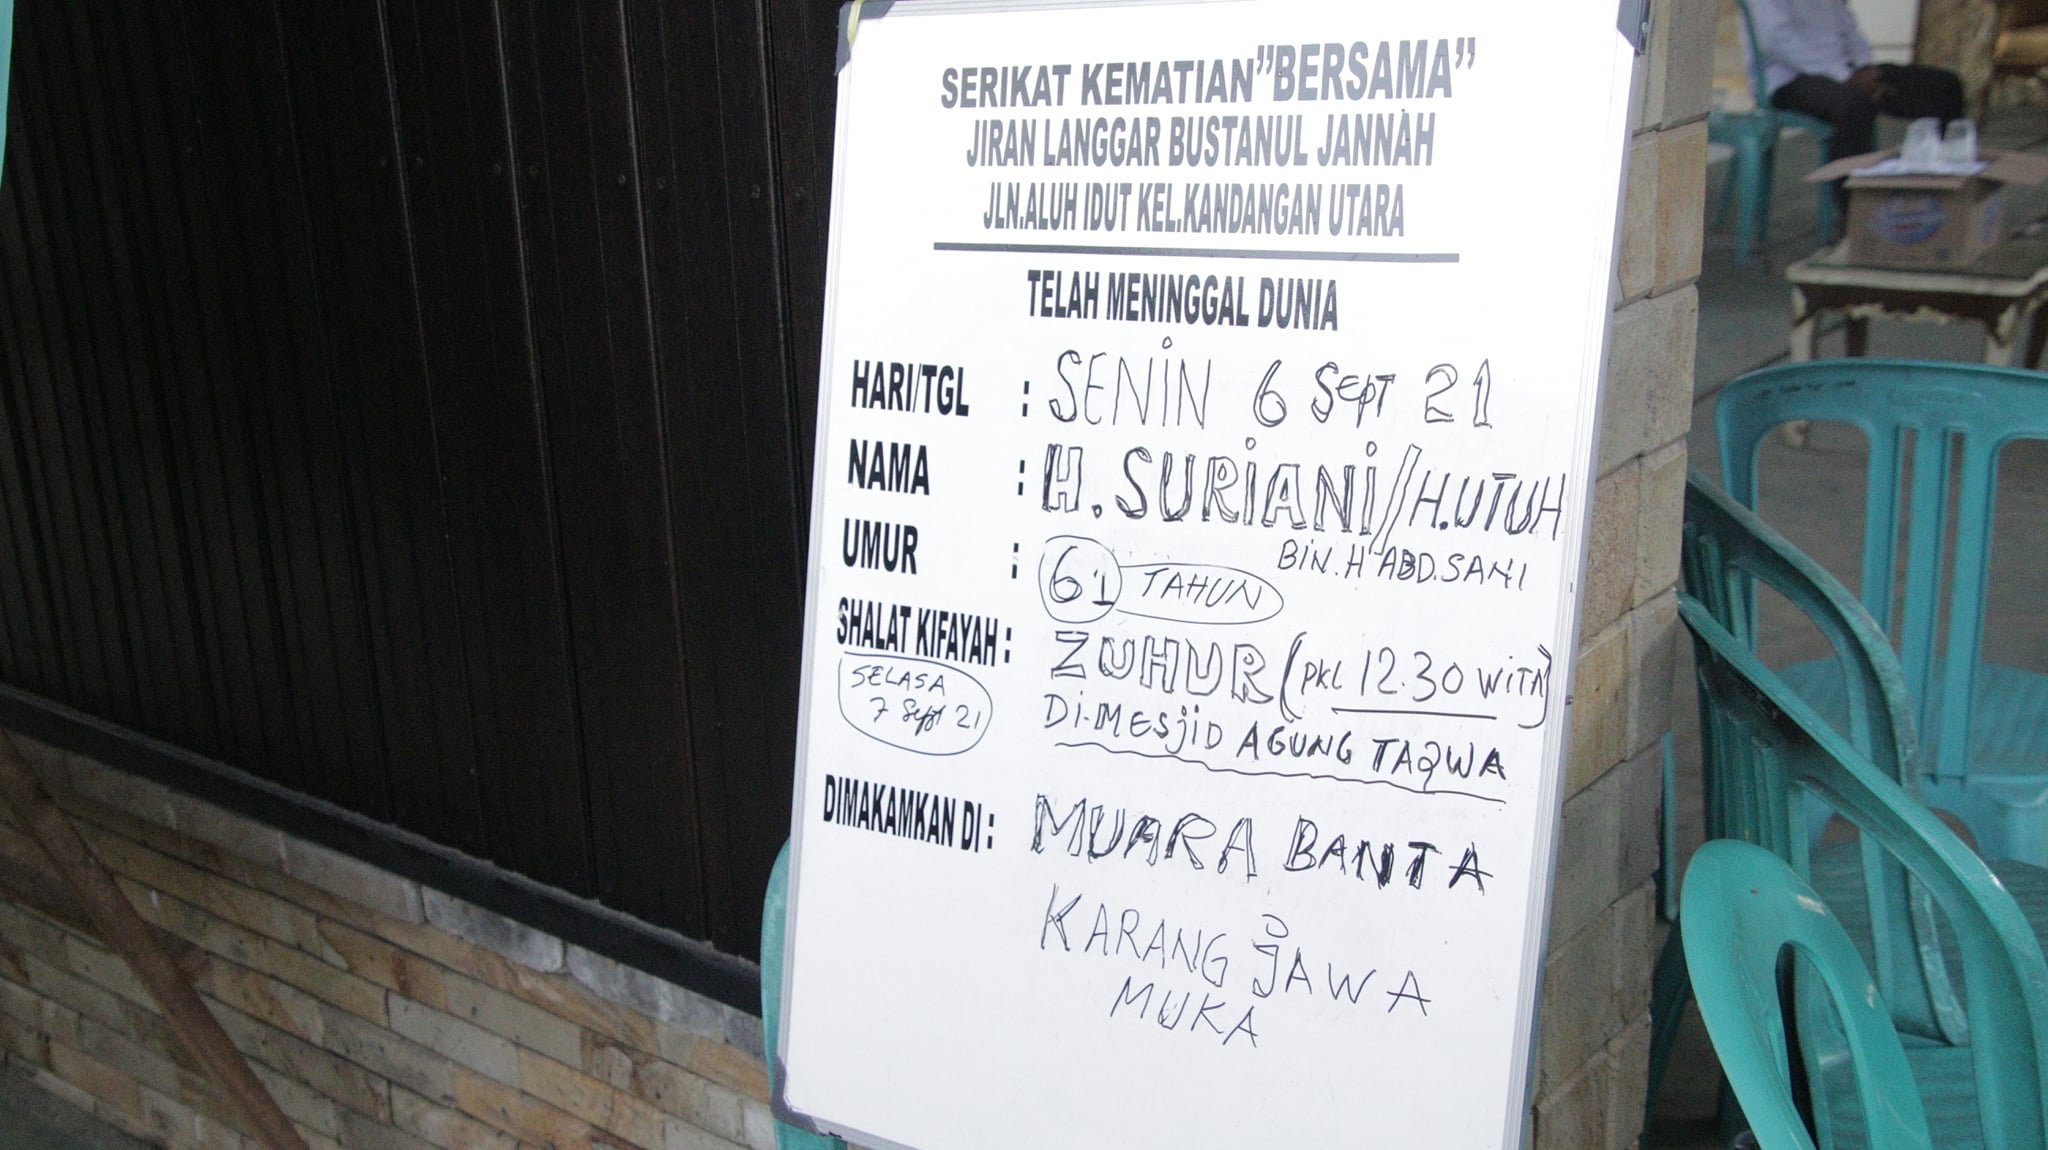 SERIKAT KEMATIAN"BERSAMA"
JIRAN LANGGAR BUSTANUL JANNAH
JLN.ALUH IDUT KEL.KANDANGAN UTARA
TELAH MENINGGAL DUNIA
HARI/TGL : SENIN 6 SEPT 21
NAMA : H. SURIANI/H.UTUH
BIN.H ABD.SANI
UMUR : 61 TAHUN
SHALAT KIFAYAH : ZUHUR (PKL 12.30 WITA)
SELASA
7 Sept 21
Di.MESJID AGUNG TAQWA
DIMAKAMKAN DI : MUARA BANTA
KARANG JAWA
MUKA